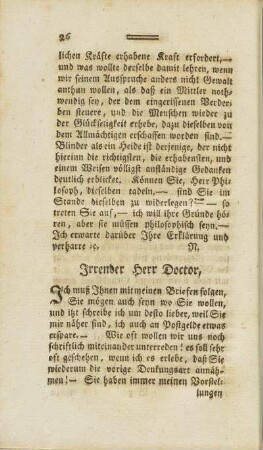 26
lichen Kräfte erhabene Kraft erfordert,—
und was wollte derselbe damit lehren, wenn
wir seinem Ausspruche anders nicht Gewalt
anthun wollen, als daß ein Mittler noth-
wendig sey, der dem eingerissenen Verder-
ben steuere, und die Menschen wieder zu
der Glückseligkeit erhebe, dazu dieselben von
dem Allmächtigen erschaffen worden sind.—
Blinder als ein Heide ist derjenige, der nicht
hierinn die richtigsten, die erhabensten, und
einem Weisen völligst anständige Gedanken
deutlich erblicket. Können Sie, Herr Phi-
losoph, dieselben tadeln,— sind Sie im
Stande dieselben zu widerlegen?— — so
treten Sie auf,— ich will ihre Gründe hö-
ren, aber sie müssen philosophisch seyn.—
Ich erwarte darüber Ihre Erklärung und
verharre ꝛc. N.
Irrender Herr Doctor,
Ich muß Ihnen mit meinen Briefen folgen,
Sie mögen auch seyn wo Sie wollen,
und itzt schreibe ich um desto lieber, weil Sie
mir näher sind, ich auch an Postgelde etwas
erspare.— Wie oft wollen wir uns noch
schriftlich miteinander unterreden! es soll sehr
oft geschehen, wenn ich es erlebe, daß Sie
wiederum die vorige Denkungsart annäh-
men!— Sie haben immer meinen Vorstel-
lungen